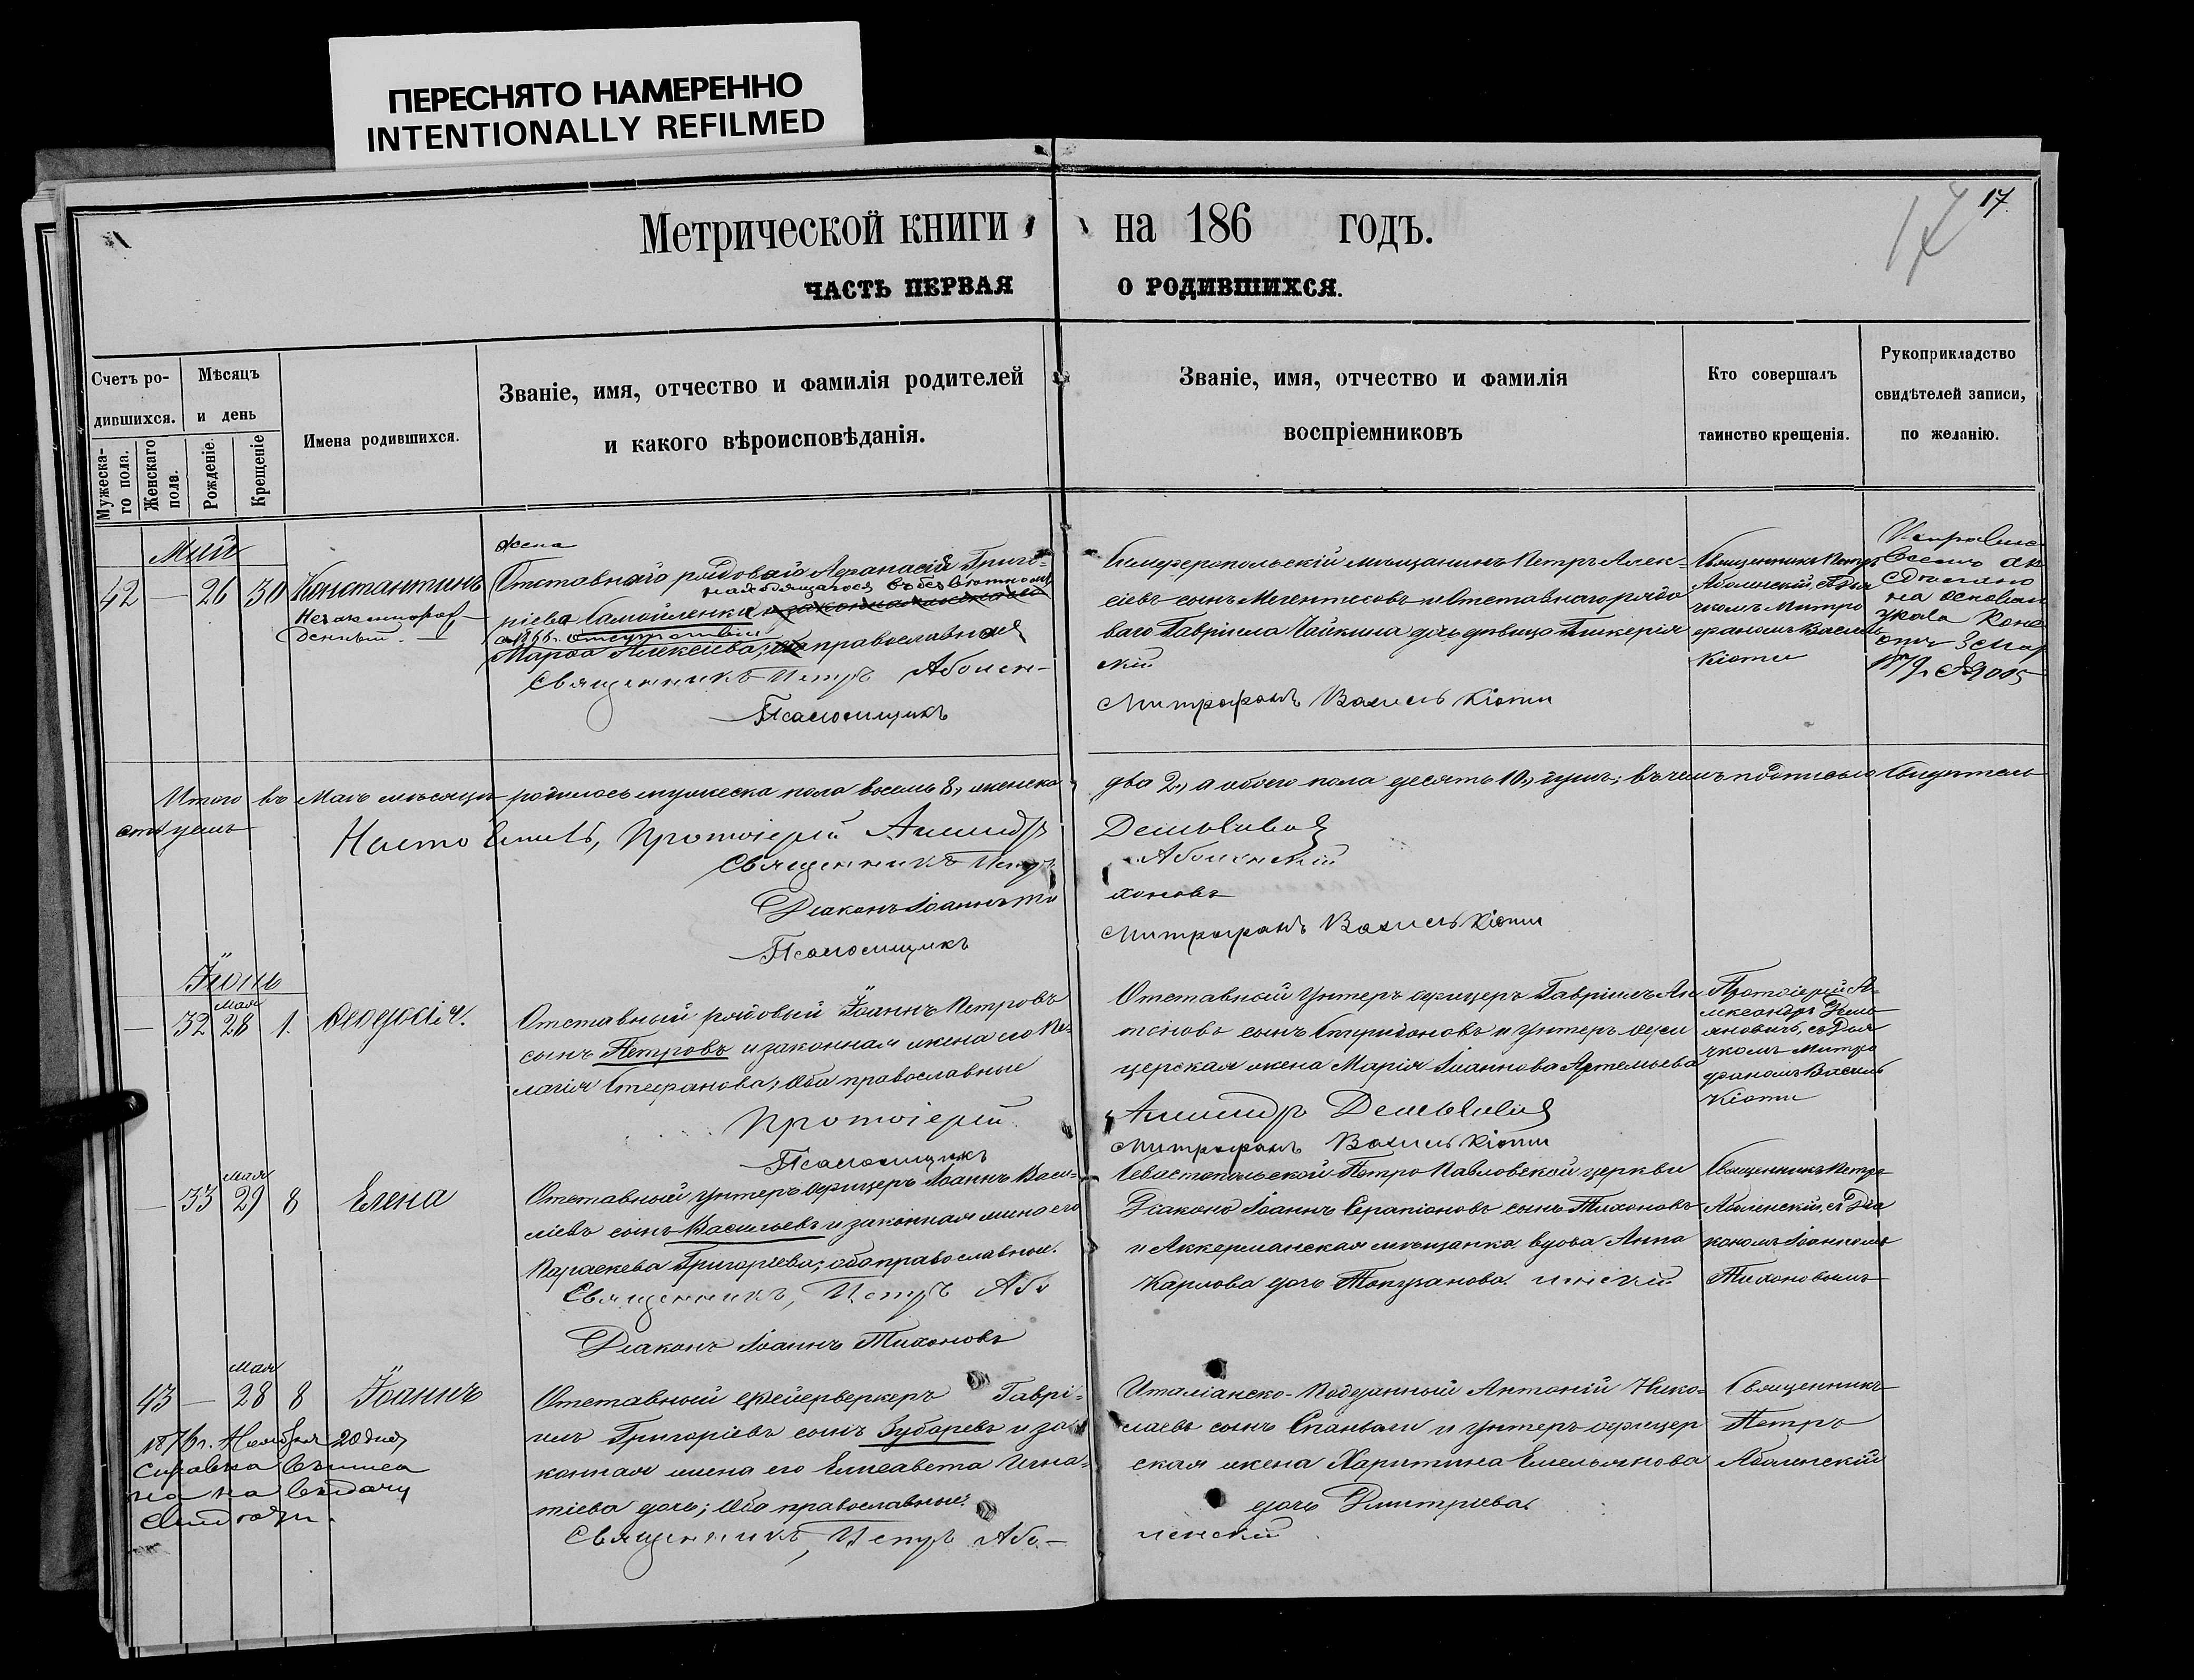 ПЕРЕСНЯТО НАМЕРЕННО
INTENTIONALLY REFILMED
17
17.
Метрической книги на 186 годъ.
ЧАСТЬ ПЕРВАЯ О РОДИВШИХСЯ.
Счетъ ро-
дившихся.
Мужеска-
го пола.
Женскаго
пола.
Мѣсяцъ
и день
Рожденіе.
Крещеніе
Имена родившихся.
Званіе, имя, отчество и фамилія родителей
и какого вѣроисповѣданія.
Званіе, имя, отчество и фамилія
воспріемниковъ
Кто совершалъ
таинство крещенія.
Рукоприкладство
свидѣтелей записи,
по желанію.
Май
42 — 26 30 Константинъ
Незаконнорож
денный.
жена
Отставнаго рядоваго Аѳанасія Григо-
находящагося въ безвѣстномъ
ріева Самойленки
съ 1866 г. отсутствіи
Марѳа Алексѣева, православная
Священникъ Петръ Аболен-
Псаломщикъ
Симферопольскій мѣщанинъ Петръ Алек-
сіевъ сынъ и Отставнаго рядо
ваго Гавріила Чайкина дочь дѣвица Гликерія
скій
Митрофанъ Василькіоти
Священникъ Петръ
Аболенскій, съ Дья
чкомъ Митро
фаномъ Василь
кіоти
сдѣлано
на основан
указа Конс
отъ 3 Мар
1879 г. №1005
Итого въ Маѣ мѣсяцѣ родилось мужеска пола восемь 8, женска два 2, а обоего пола десять 10, душъ; въ чемъ подписью свидѣтель
ствуемъ
Настоятель, Протоіерей Александръ Демьяновичъ
Священникъ Петръ Аболенскій
Діаконъ Іоаннъ Тихоновъ
Псаломщикъ Митрофанъ Василькіоти
Іюнь
мая
— 32 28 1. Ѳеодосія.
Отставный рядовый Іоаннъ Петровъ
сынъ Петровъ и законная жена его Пе-
лагія Стефанова, оба православные
Протоіерей
Псаломщикъ
Отставной Унтеръ офицеръ Гавріилъ Ан
тоновъ сынъ и Унтеръ-офи
церская жена Марія Іоаннова Артемьева
Александръ Демьяновичъ
Митрофанъ Василькіоти
Протоіерей А-
лександръ Демь
яновичъ, съ Дья
чкомъ Митро
фаномъ Василь
кіоти
мая
— 33 29 8 Елена
Отставный Унтеръ Офицеръ Іоаннъ Васи-
ліевъ сынъ Васильевъ и законная жена его
Параскева Григоріева; оба православные.
Священникъ, Петръ Або
Діаконъ Іоаннъ Тихоновъ
Севастопольской Петро-Павловской церкви
Діаконъ Іоаннъ Серапіоновъ сынъ Тихоновъ
и Аккерманская мѣщанка вдова Анна
Карлова дочь
ленскій
Священникъ Петръ
Аболенскій, съ Діа
кономъ Іоанномъ
Тихоновымъ
мая
43 — 28 8 Іоаннъ
1876 г. Ноября 20 дня
справка
на выдачу
Отставный фейерверкеръ Гаврі-
илъ Григоріевъ сынъ Зубаревъ и за
конная жена его Елисавета Игна-
тіева дочь; Оба православные.
Священникъ, Петръ Або-
Италіанско-Подданный Антоній Нико-
лаевъ сынъ и Унтеръ офицер
ская жена Харитина Емельянова
дочь Дмитріева
ленскій
Священникъ
Петръ
Аболенскій